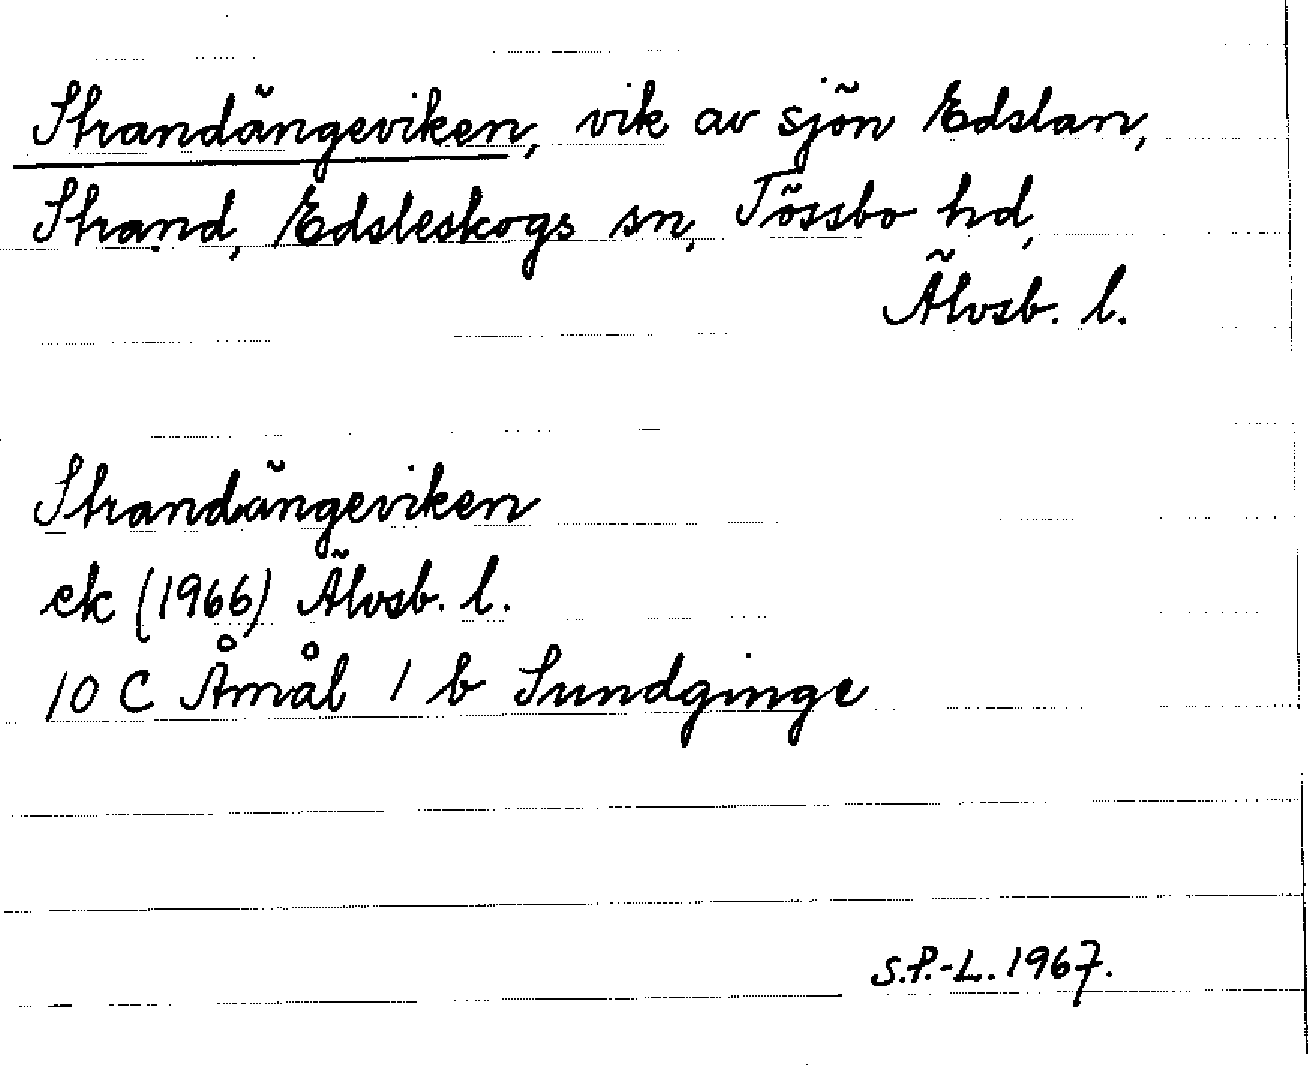 Strandängeviken, vik av sjön Edslan,
Strand, Edsleskogs sn, Tössbo hd,
Älvsb. l.
Strandängeviken
ek (1966) Älvsb. l.
10 C Åmål 1 b Sundginge
S.P.-L. 1967.